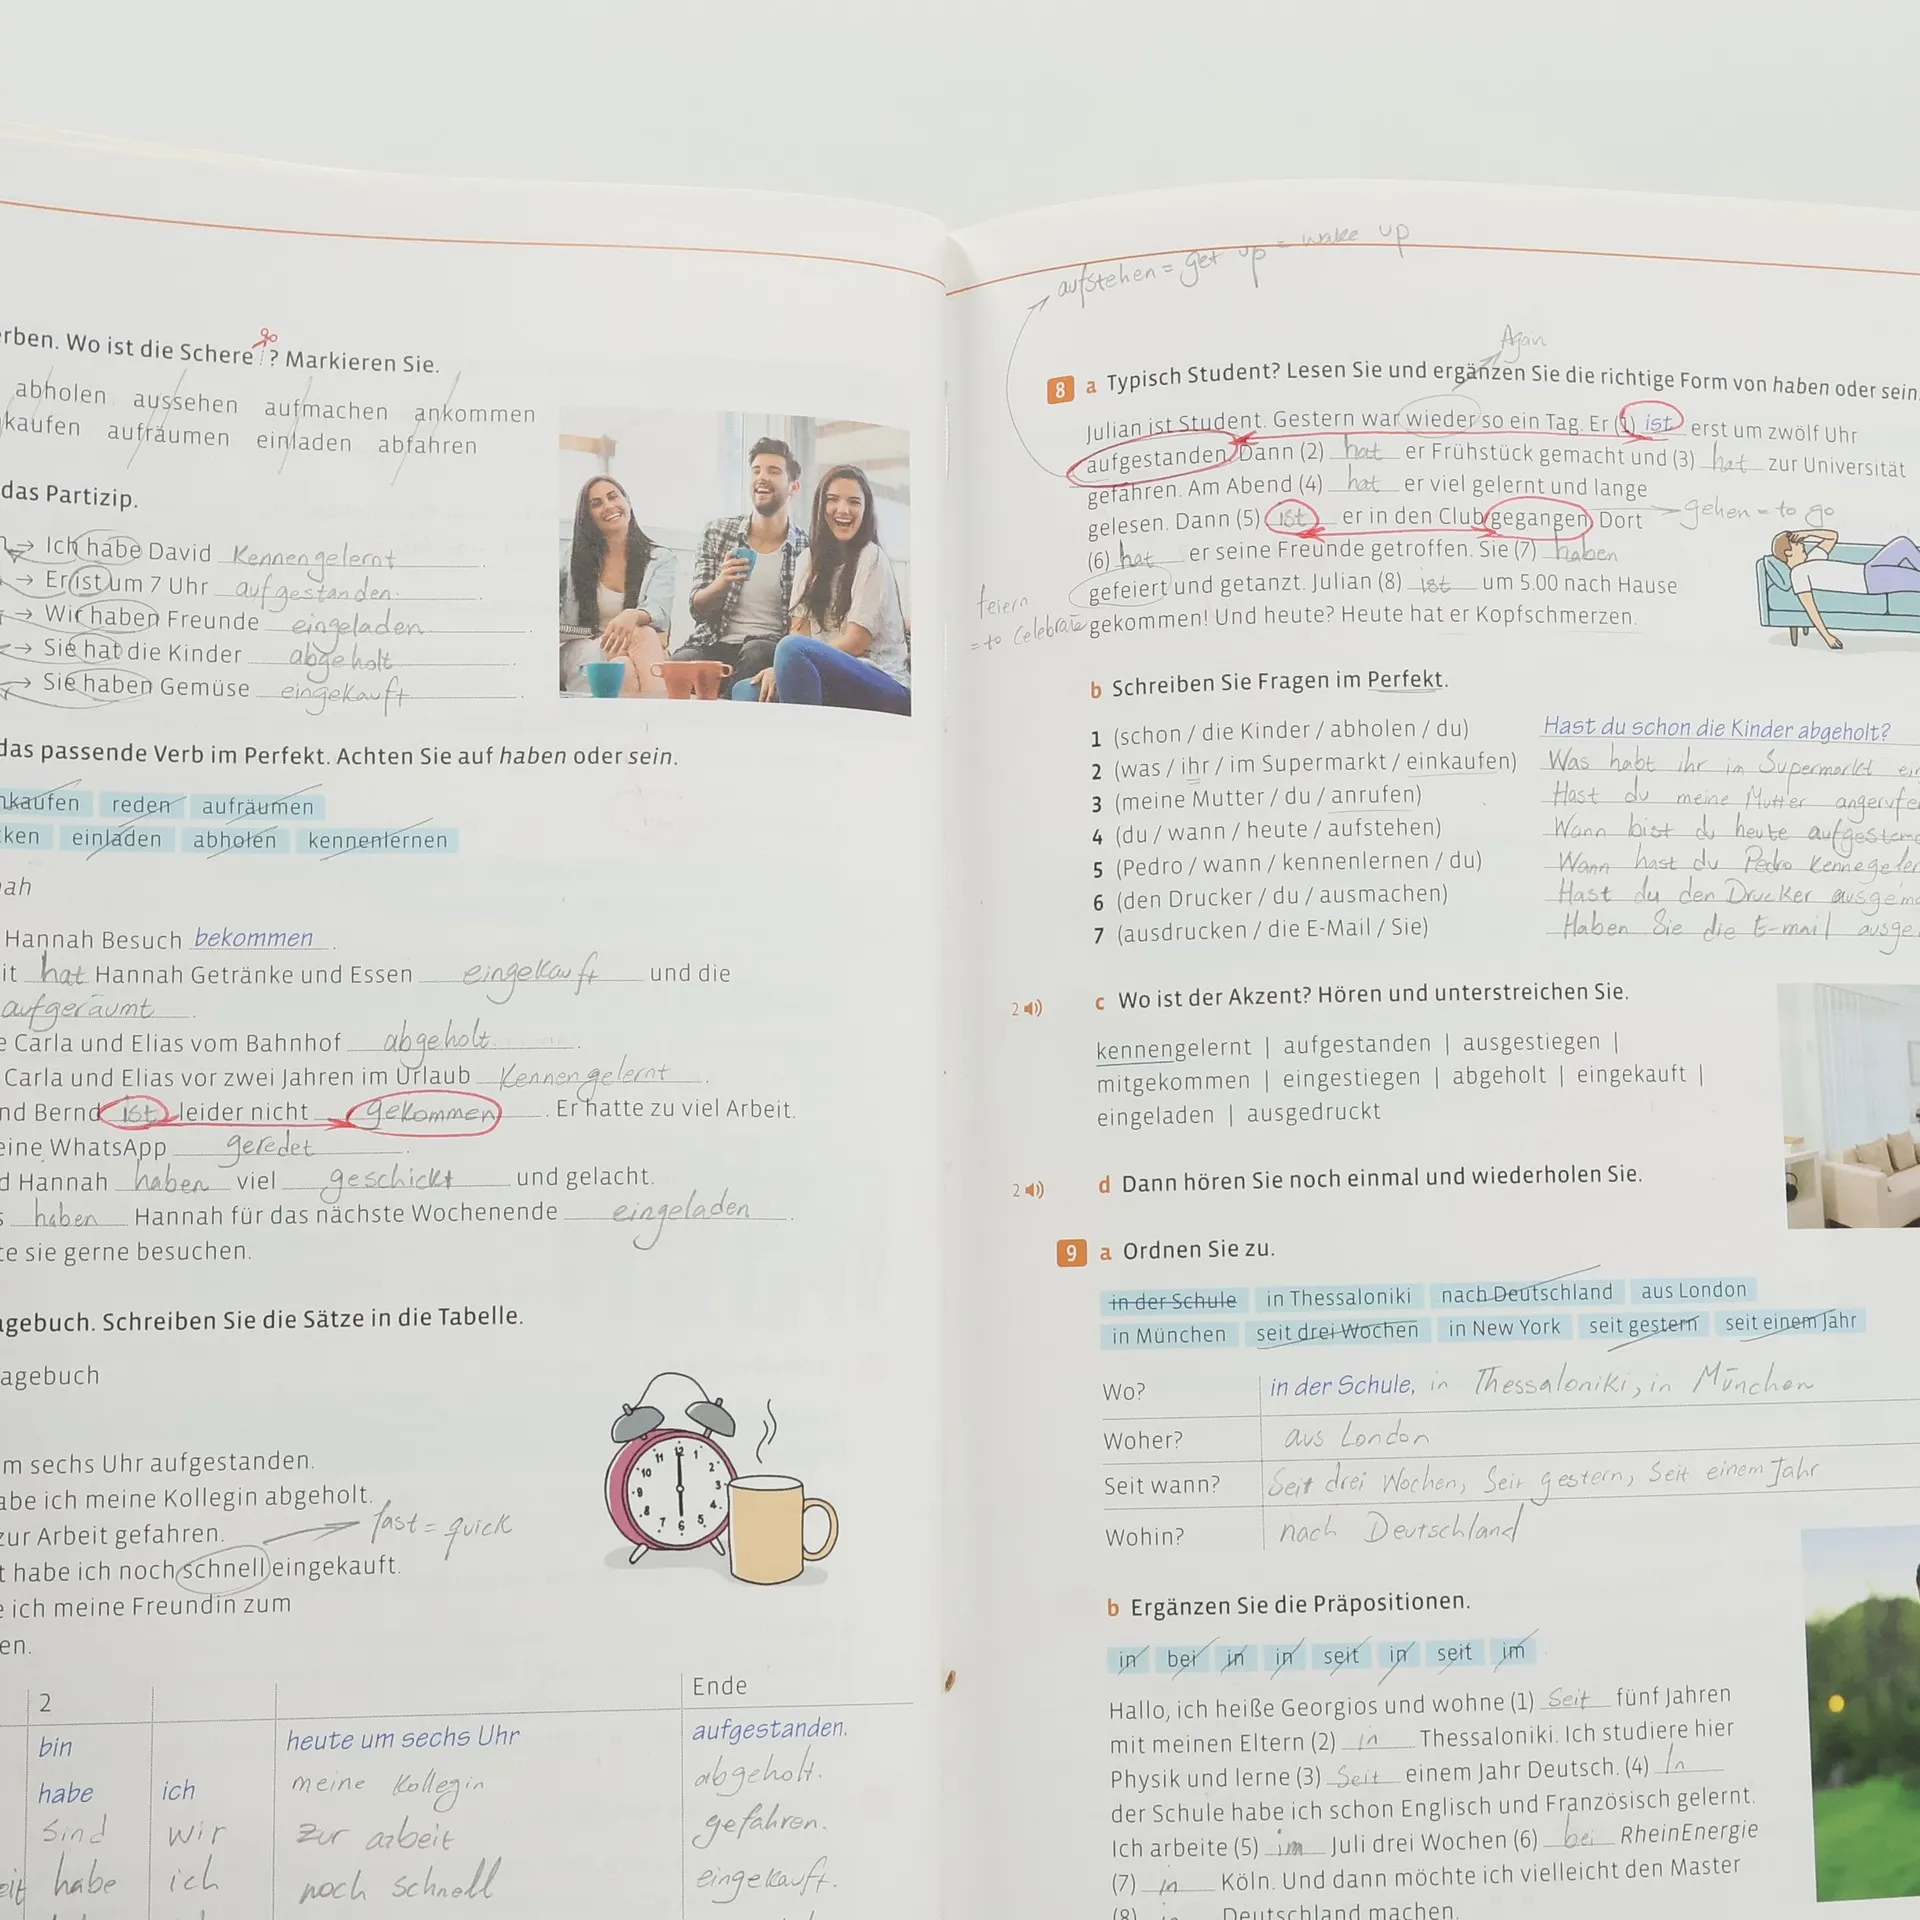 rben. Wo ist die Schere ? Markieren Sie.
abholen aussehen aufmachen ankommen
kaufen aufräumen einladen abfahren
das Partizip.
→ Ich habe David Kennengelernt .
→ Er ist um 7 Uhr aufgestanden.
→ Wir haben Freunde eingeladen .
→ Sie hat die Kinder abgeholt .
→ Sie haben Gemüse eingekauft .
das passende Verb im Perfekt. Achten Sie auf haben oder sein.
kaufen reden aufräumen
ken einladen abholen kennenlernen
ah
Hannah Besuch bekommen .
it hat Hannah Getränke und Essen eingekauft und die
aufgeräumt .
e Carla und Elias vom Bahnhof abgeholt .
Carla und Elias vor zwei Jahren im Urlaub Kennengelernt .
nd Bernd ist leider nicht gekommen . Er hatte zu viel Arbeit.
eine WhatsApp geredet .
d Hannah haben viel geschickt und gelacht.
s haben Hannah für das nächste Wochenende eingeladen .
te sie gerne besuchen.
agebuch. Schreiben Sie die Sätze in die Tabelle.
agebuch
m sechs Uhr aufgestanden.
abe ich meine Kollegin abgeholt.
zur Arbeit gefahren.
fast = quick
t habe ich noch schnell eingekauft.
e ich meine Freundin zum
en.
12 1 2 3 4 5 6 7 8 9 10 11
2 Ende
bin heute um sechs Uhr aufgestanden.
habe ich meine Kollegin abgeholt.
Sind wir zur arbeit gefahren.
eit habe ich noch schnell eingekauft.
aufstehen = get up = wake up
Again
8 a Typisch Student? Lesen Sie und ergänzen Sie die richtige Form von haben oder sein
Julian ist Student. Gestern war wieder so ein Tag. Er (1) ist erst um zwölf Uhr
aufgestanden. Dann (2) hat er Frühstück gemacht und (3) hat zur Universität
gefahren. Am Abend (4) hat er viel gelernt und lange
gelesen. Dann (5) ist er in den Club gegangen. Dort
gehen = to go
(6) hat er seine Freunde getroffen. Sie (7) haben
gefeiert und getanzt. Julian (8) ist um 5.00 nach Hause
feiern
= to Celebrate
gekommen! Und heute? Heute hat er Kopfschmerzen.
b Schreiben Sie Fragen im Perfekt.
1 (schon / die Kinder / abholen / du) Hast du schon die Kinder abgeholt?
2 (was / ihr / im Supermarkt / einkaufen) Was habt ihr im Supermarkt ein
3 (meine Mutter / du / anrufen) Hast du meine Mutter angerufe
4 (du / wann / heute / aufstehen) Wann bist du heute aufgestand
5 (Pedro / wann / kennenlernen / du) Wann hast du Pedro Kennegeler
6 (den Drucker / du / ausmachen) Hast du den Drucker ausgema
7 (ausdrucken / die E-Mail / Sie) Haben Sie die E-mail ausge
2 c Wo ist der Akzent? Hören und unterstreichen Sie.
kennengelernt | aufgestanden | ausgestiegen |
mitgekommen | eingestiegen | abgeholt | eingekauft |
eingeladen | ausgedruckt
2 d Dann hören Sie noch einmal und wiederholen Sie.
9 a Ordnen Sie zu.
in der Schule in Thessaloniki nach Deutschland aus London
in München seit drei Wochen in New York seit gestern seit einem Jahr
Wo? in der Schule, in Thessaloniki, in München
Woher? aus London
Seit wann? Seit drei Wochen, Seit gestern, Seit einem Jahr
Wohin? nach Deutschland
b Ergänzen Sie die Präpositionen.
in bei in in seit in seit im
Hallo, ich heiße Georgios und wohne (1) Seit fünf Jahren
mit meinen Eltern (2) in Thessaloniki. Ich studiere hier
Physik und lerne (3) Seit einem Jahr Deutsch. (4) In
der Schule habe ich schon Englisch und Französisch gelernt.
Ich arbeite (5) im Juli drei Wochen (6) bei RheinEnergie
(7) in Köln. Und dann möchte ich vielleicht den Master
(8) in Deutschland machen.